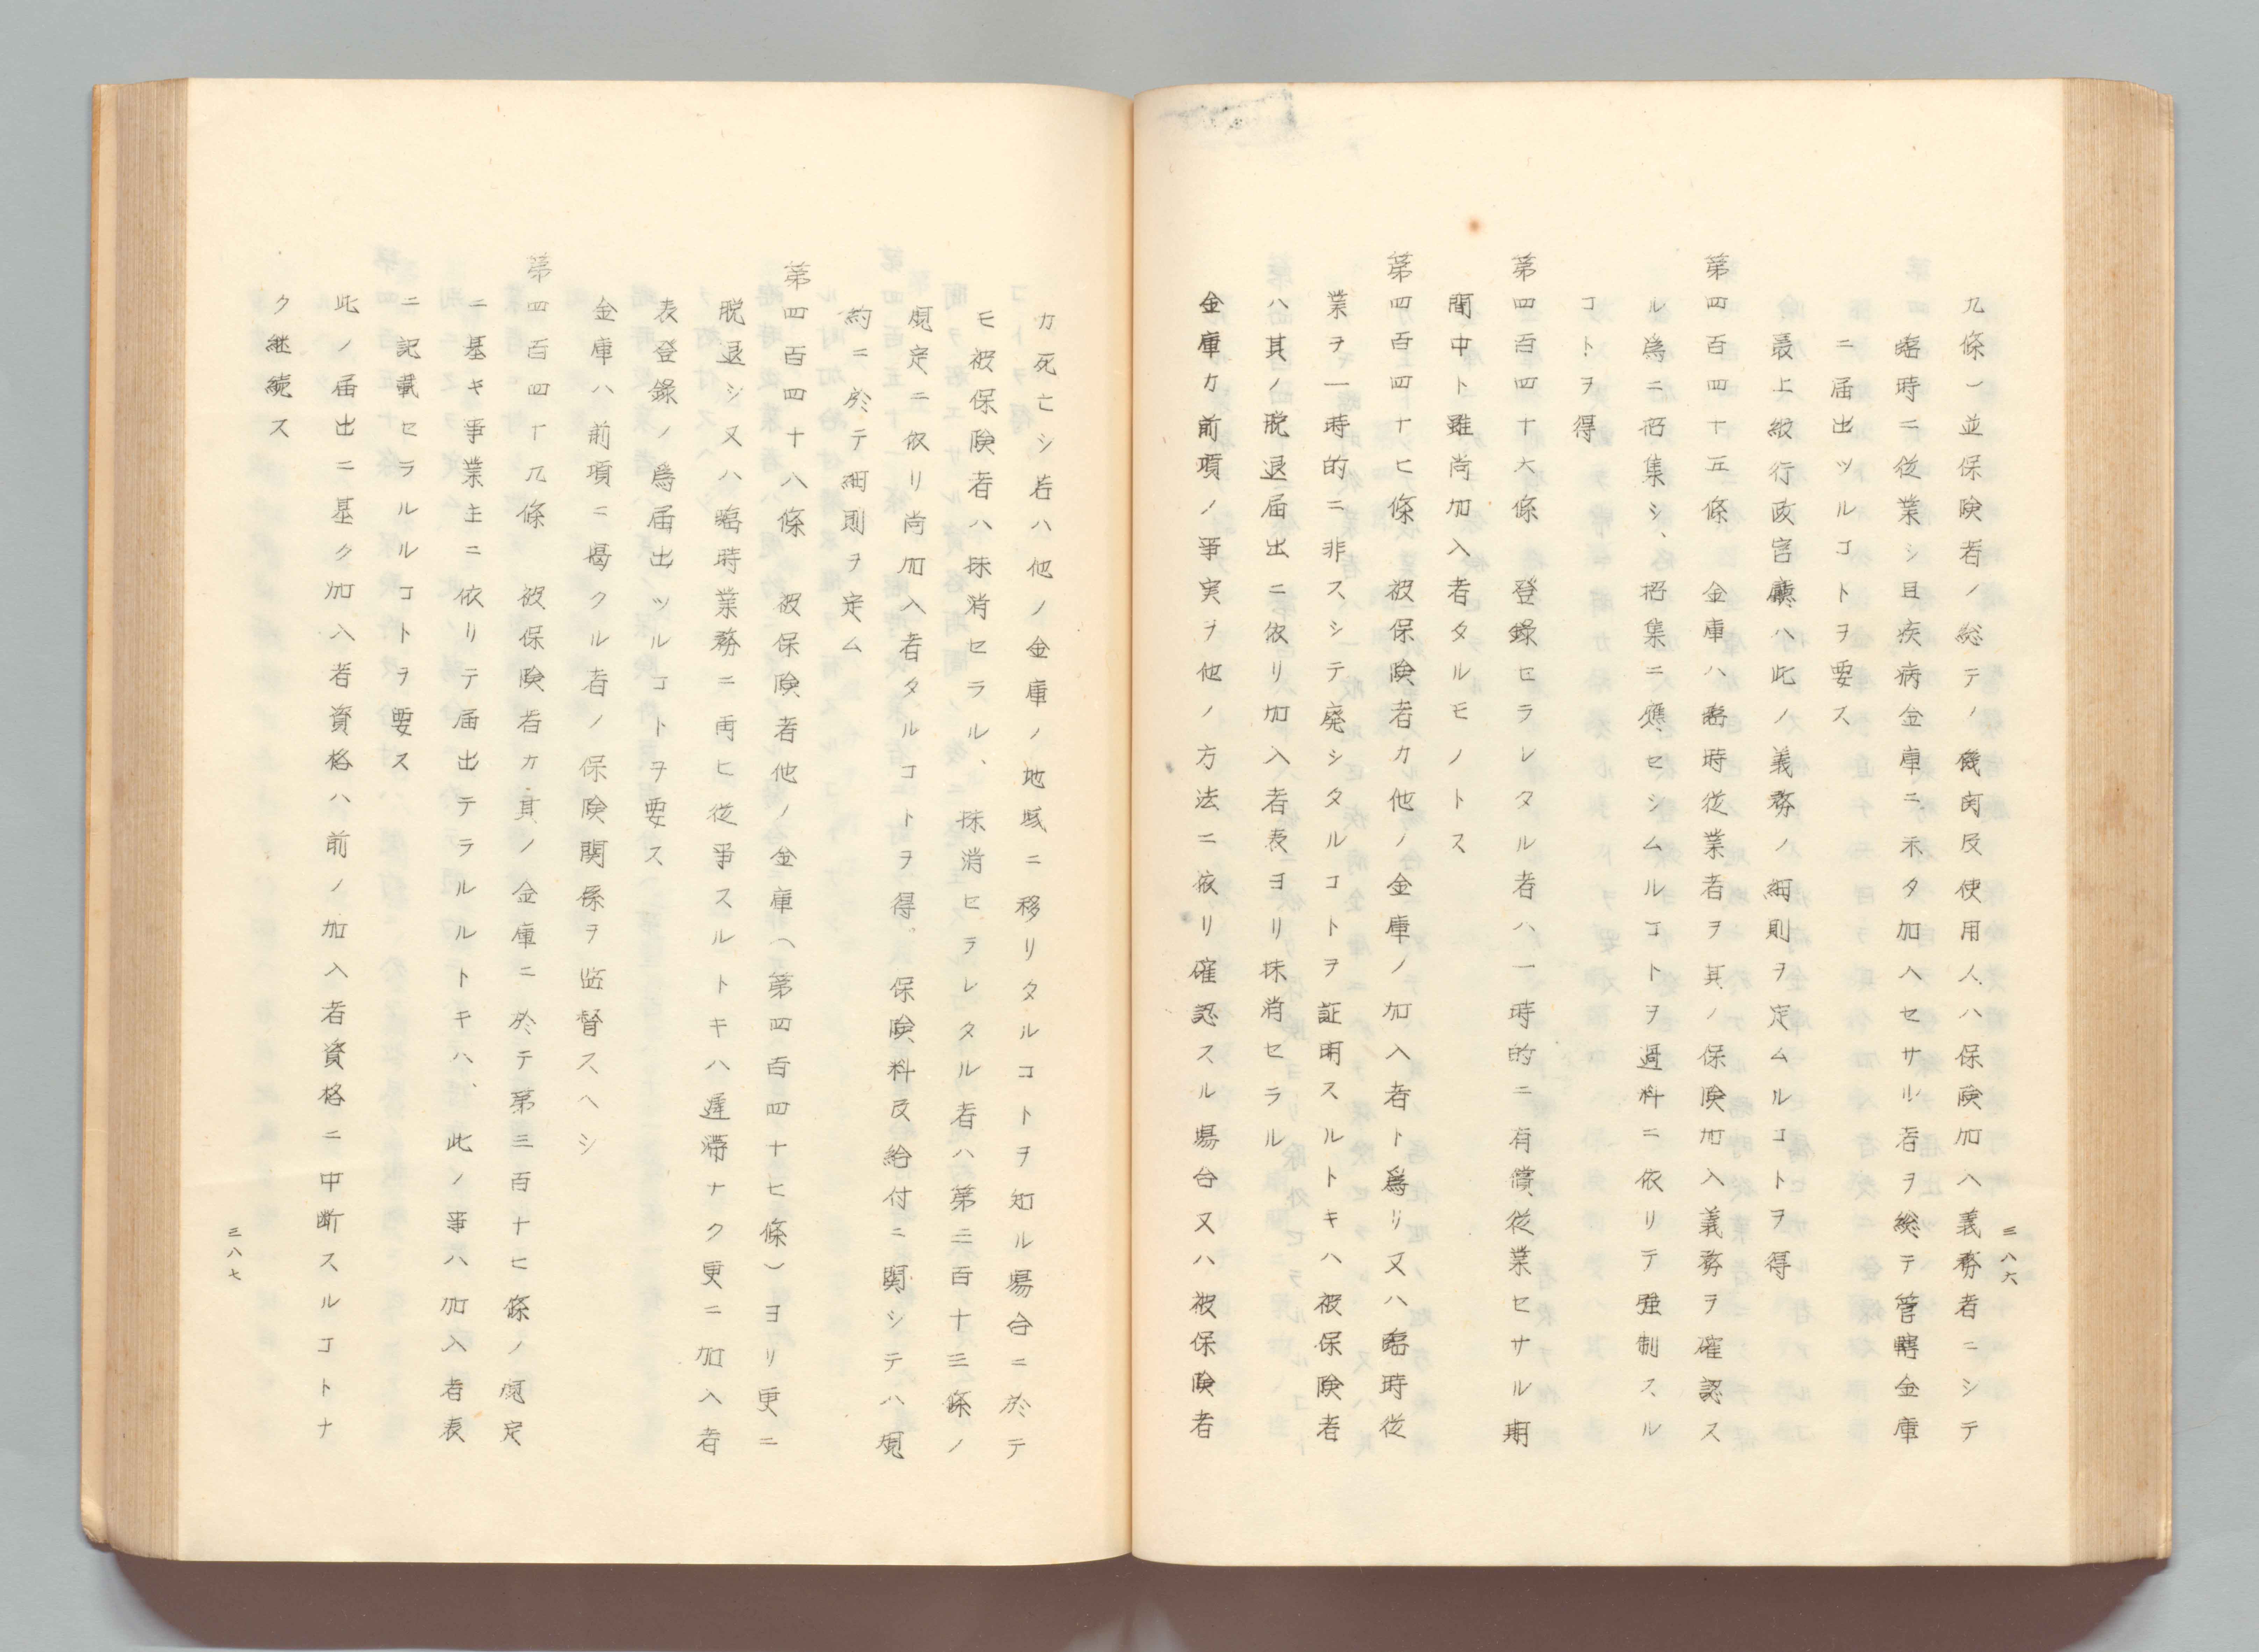 三八六
九條)並保険者ノ総テノ機関及使用人ハ保険加入義務者ニシテ
臨時ニ従業シ且疾病金庫ニ未タ加入セサル者ヲ総テ管轄金庫
ニ届出ツルコトヲ要ス
最上級行政官廳ハ此ノ義務ノ細則ヲ定ムルコトヲ得
第四百四十五條　金庫ハ臨時従業者ヲ其ノ保険加入義務ヲ確認ス
ル為ニ招集シ、招集ニ應セシムルコトヲ過料ニ依リテ強制スル
コトヲ得
第四百四十六條　登録セラレタル者ハ一時的ニ有償従業セサル期
間中ト雖尚加入者タルモノトス
第四百四十七條　被保険者カ他ノ金庫ノ加入者ト為リ又ハ臨時従
業ヲ一時的ニ非スシテ廃シタルコトヲ証明スルトキハ被保険者
ハ其ノ脱退届出ニ依リ加入者表ヨリ抹消セラル
金庫カ前項ノ事実ヲ他ノ方法ニ依リ確認スル場合又ハ被保険者
カ死亡シ若ハ他ノ金庫ノ地域ニ移リタルコトヲ知ル場合ニ於テ
モ被保険者ハ抹消セラル、抹消セラレタル者ハ第三百十三條ノ
規定ニ依リ尚加入者タルコトヲ得。保険料及給付ニ関シテハ規
約ニ於テ細則ヲ定ム
第四百四十八條　被保険者他ノ金庫(第四百四十七條)ヨリ更ニ
脱退シ又ハ臨時業務ニ再ヒ従事スルトキハ遅滞ナク更ニ加入者
表登録ノ為届出ツルコトヲ要ス
金庫ハ前項ニ掲クル者ノ保険関係ヲ監督スヘシ
第四百四十九條　被保険者カ其ノ金庫ニ於テ第三百十七條ノ規定
ニ基キ事業主ニ依リテ届出テラルルトキハ、此ノ事ハ加入者表
ニ記載セラルルコトヲ要ス
此ノ届出ニ基ク加入者資格ハ前ノ加入者資格ニ中断スルコトナ
ク継続ス
三八七